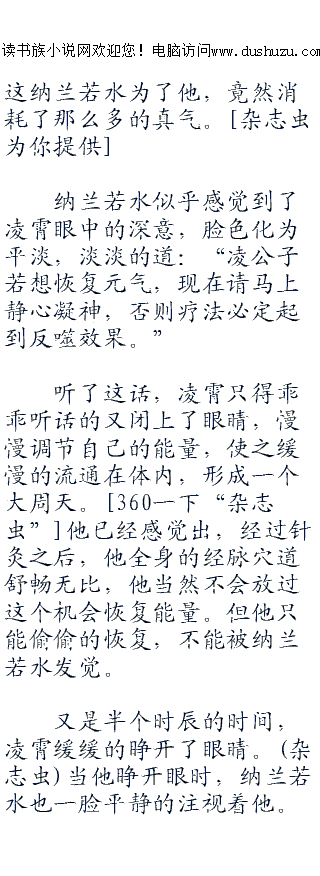 读书族小说网欢迎您！电脑访问www.dushuzu.com
这纳兰若水为了他，竟然消
耗了那么多的真气。[杂志虫
为你提供]
纳兰若水似乎感觉到了
凌霄眼中的深意，脸色化为
平淡，淡淡的道：“凌公子
若想恢复元气，现在请马上
静心凝神，否则疗法必定起
到反噬效果。”
听了这话，凌霄只得乖
乖听话的又闭上了眼睛，慢
慢调节自己的能量，使之缓
慢的流通在体内，形成一个
大周天。[360一下“杂志
虫”]他已经感觉出，经过针
灸之后，他全身的经脉穴道
舒畅无比，他当然不会放过
这个机会恢复能量。但他只
能偷偷的恢复，不能被纳兰
若水发觉。
又是半个时辰的时间，
凌霄缓缓的睁开了眼睛。(杂
志虫)当他睁开眼时，纳兰若
水也一脸平静的注视着他。